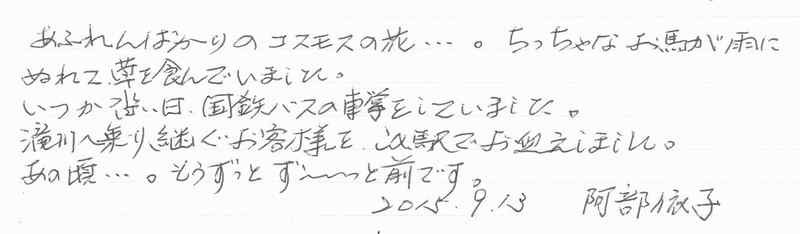 あふれんばかりのコスモスの花…。ちっちゃなお馬が雨に
ぬれて、草を食んでいました。
いつか遠い日、国鉄バスの車掌をしていました。
滝川へ乗り継ぐお客様を、この駅でお迎えしました。
あの頃…。もうずっとず〜〜っと前です。
2015.9.13 阿部依子